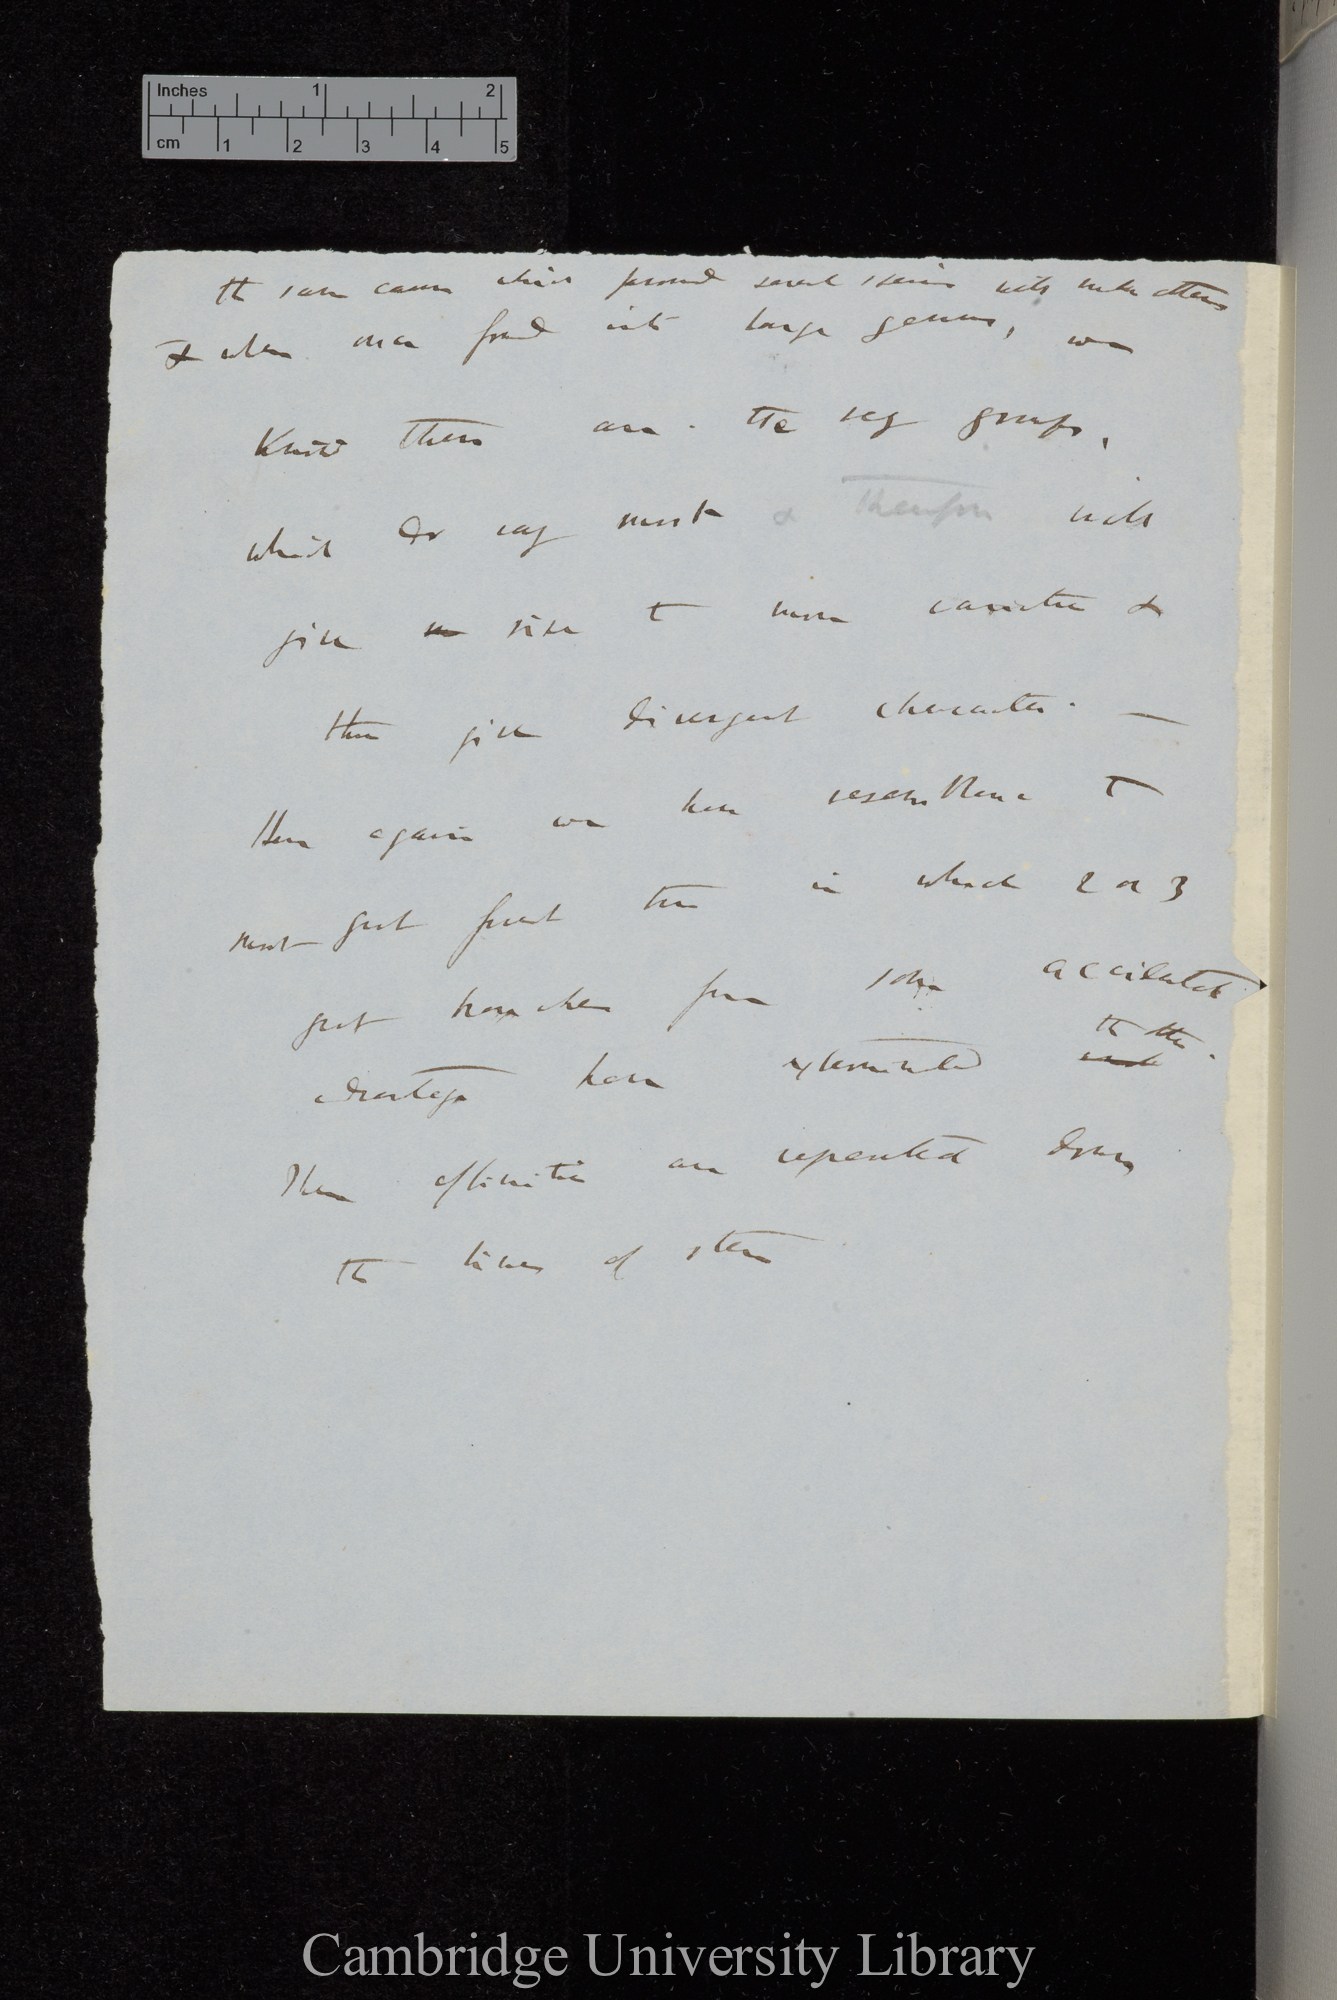 Inches 1 2
cm 1 2 3 4 5
the same causes which formed several species will make others
& when once formed into large genus, we
know these are the very groups,
which do vary most & therefore will
give rise to more varieties &
thus give divergent character. —
Here again we have resemblance to
most great forest tree in which 2 or 3
great branches from some accidental
advantage have exterminated the other.
These affinities are represented down
the lines of stem
Cambridge University Library